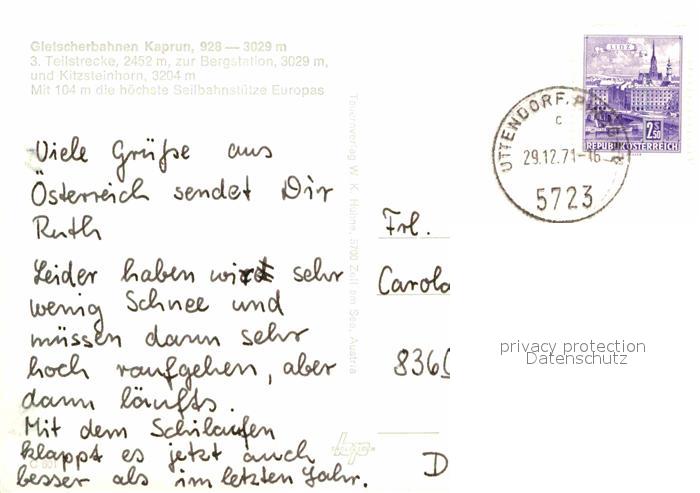 Gletscherbahnen Kaprun, 928 — 3029 m
3. Teilstrecke, 2452 m, zur Bergstation, 3029 m,
und Kitzsteinhorn, 3204 m
Mit 104 m die höchste Seilbahnstütze Europas
Viele Grüße aus
Österreich sendet Dir
Ruth
Leider haben wir sehr
wenig Schnee und
müssen dann sehr
hoch raufgehen, aber
dann läufts.
Mit dem Schilaufen
klappt es jetzt auch
besser als im letzten Jahr.
Tauernverlag W. K. 5700 Zell am See, Austria
Frl.
Carola
836
D
LINZ
2 S 50
REPUBLIK ÖSTERREICH
UTTENDORF
c
29.12.71-16
5723
privacy protection
Datenschutz